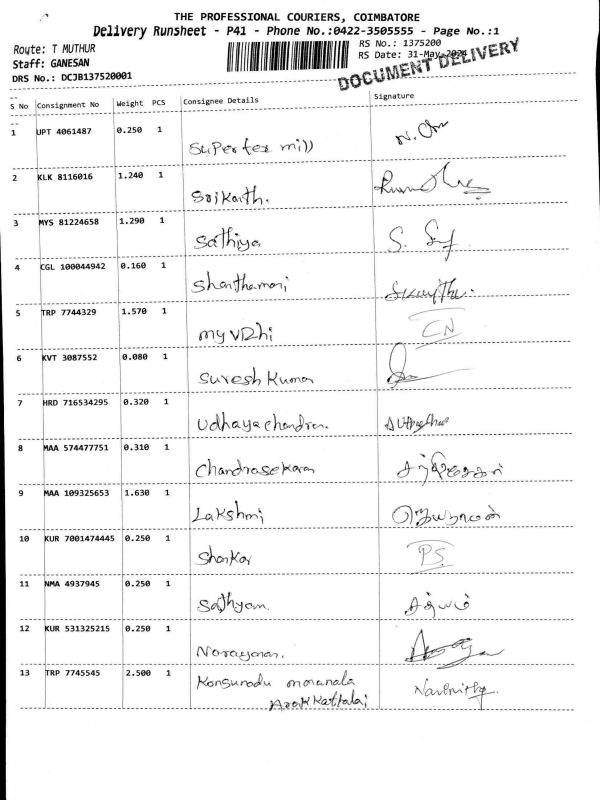 THE PROFESSIONAL COURIERS, COIMBATORE
Delivery Runsheet - P41 - Phone No.:0422-3505555 - Page No.:1
Route: T MUTHUR
RS No.: 1375200
Staff: GANESAN
RS Date: 31-May-2024
DRS No.: DCJB137520001
DOCUMENT DELIVERY
S No Consignment No Weight PCS Consignee Details Signature
1 UPT 4061487 0.250 1 Superfex mill
2 KLK 8116016 1.240 1 Srikanth.
3 MYS 81224658 1.290 1 Sathiya
4 CGL 100044942 0.160 1 Shanthamani
5 TRP 7744329 1.570 1 CN
6 KVT 3087552 0.080 1 Suresh Kumar
7 HRD 716534295 0.320 1 Udhayachandran.
8 MAA 574477751 0.310 1 Chandrasekaran
9 MAA 109325653 1.630 1 Lakshmi ஜெயராமன்
10 KUR 7001474445 0.250 1 Shankar PS.
11 NMA 4937945 0.250 1 Sathyam சத்யம்
12 KUR 531325215 0.250 1 Narayanan.
13 TRP 7745545 2.500 1